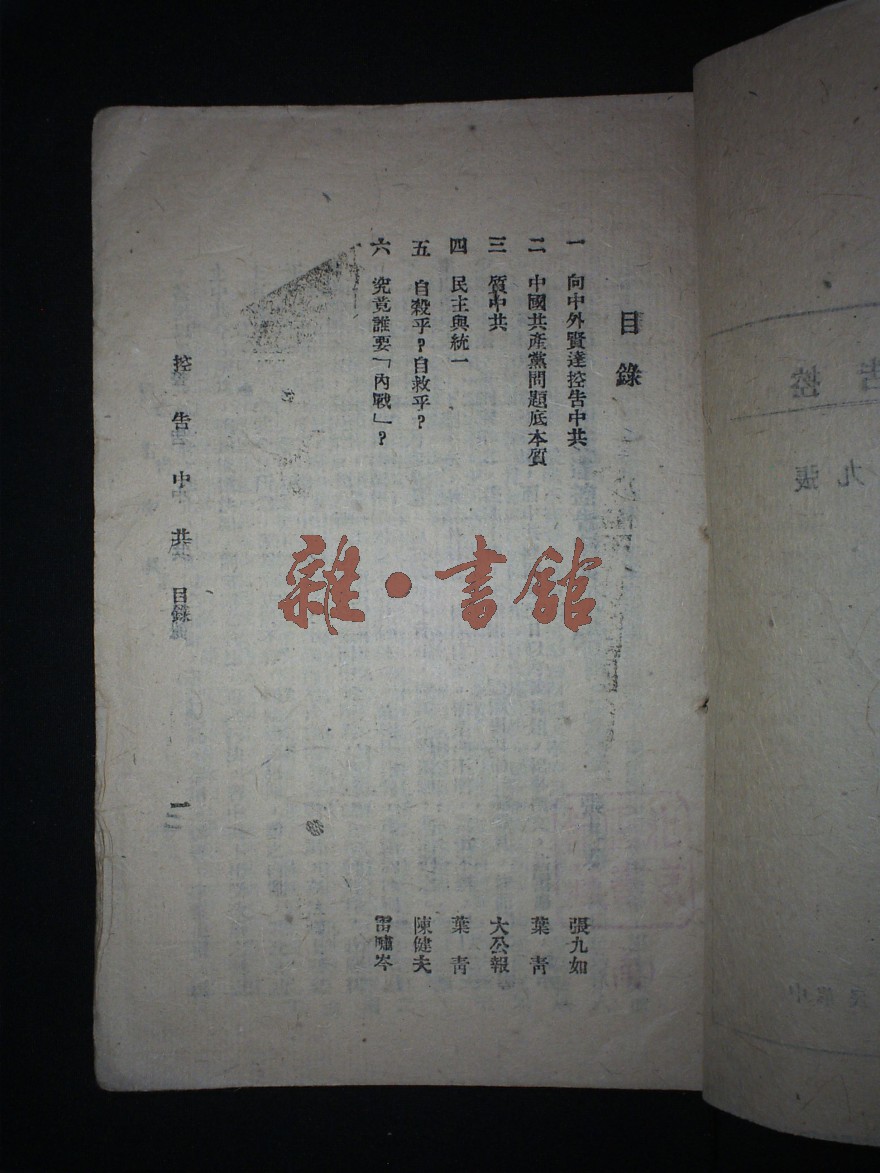 目錄
一 向中外賢達控告中共 張九如
二 中國共產黨問題底本質 葉青
三 質中共 大公報
四 民主與統一 葉青
五 自殺乎？自救乎？ 陳健夫
六 究竟誰要「內戰」？ 雷嘯岑
控告中共 目錄 一
雜·書館
告控
九張